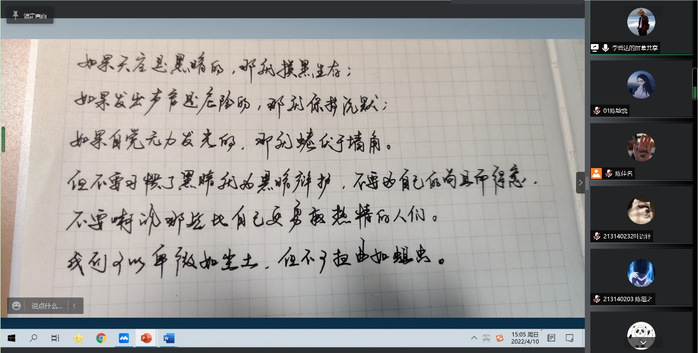 如果天空是黑暗的，那就摸黑生存；
如果发出声音是危险的，那就保持沉默；
如果自觉无力发光的，那就蜷伏于墙角。
但不要习惯了黑暗就为黑暗辩护，不要为自己的苟且而得意，
不要嘲讽那些比自己更勇敢热情的人们。
我们可以卑微如尘土，但不可扭曲如蛆虫。
说点什么...
15:05 周日
2022/4/10
的屏幕共享
213140232
213140203